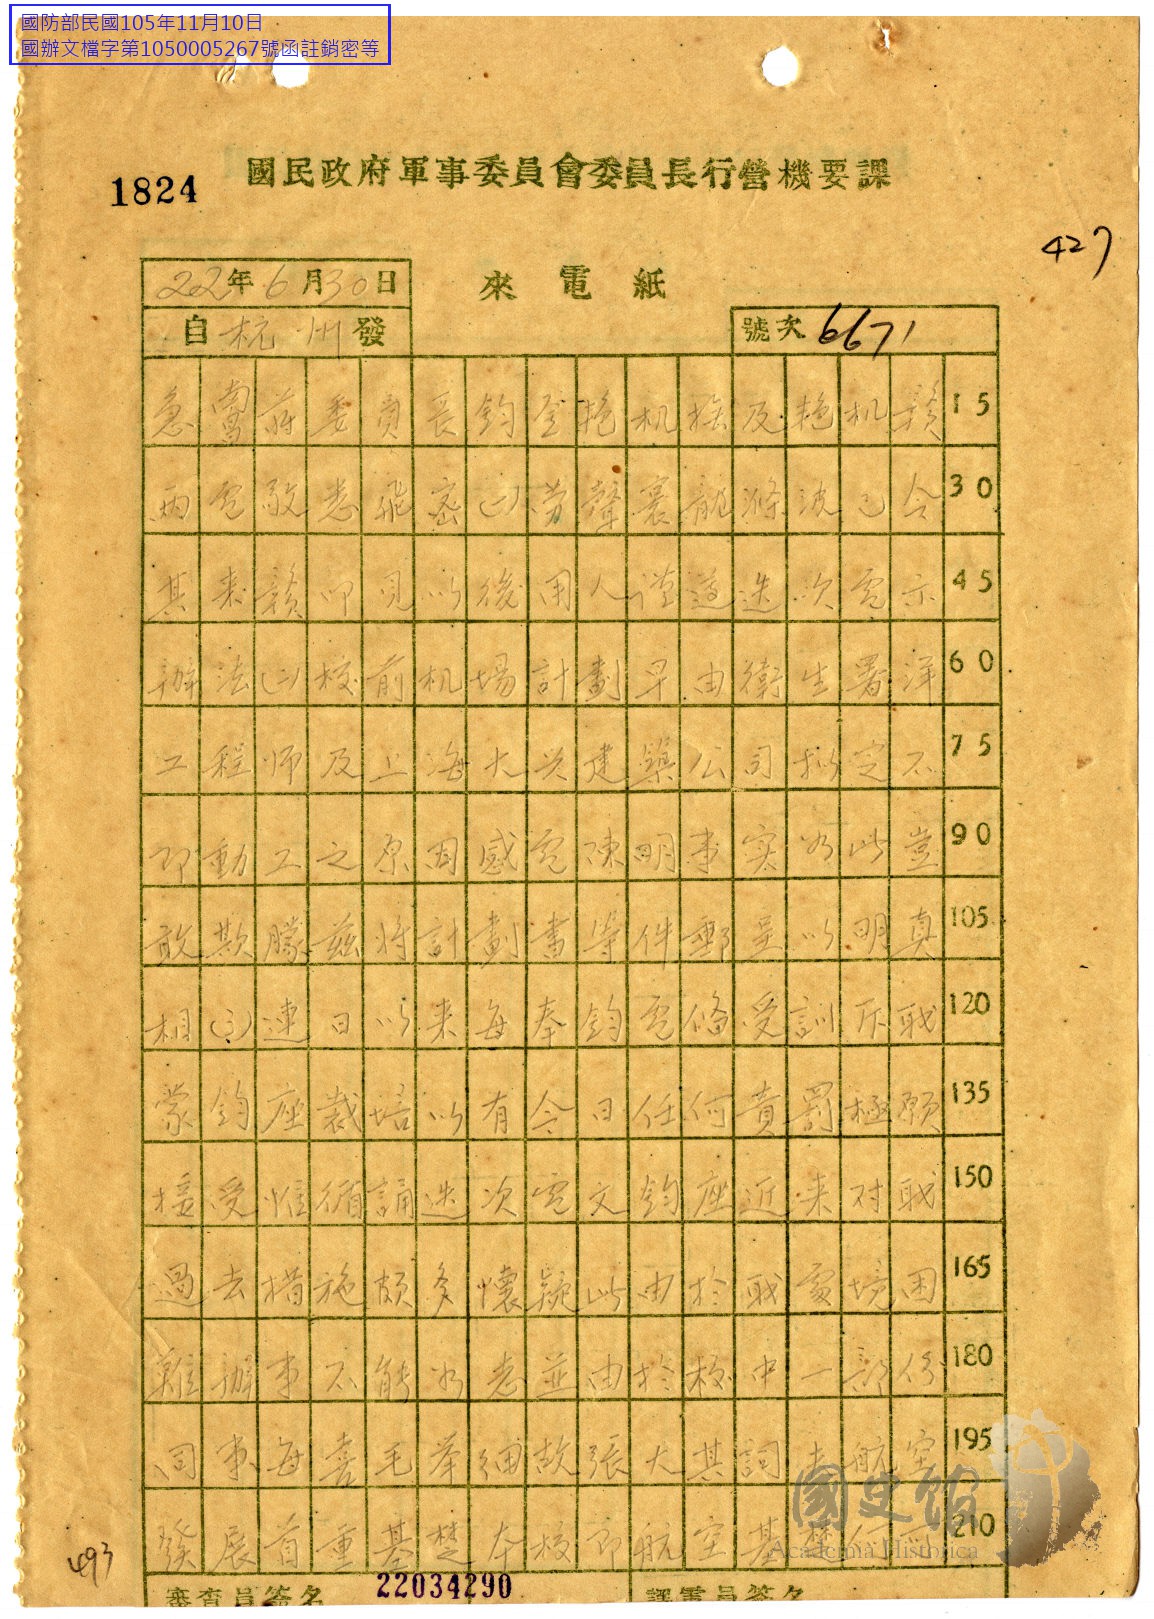 國防部民國105年11月10日
國辦文檔字第1050005267號函註銷密等
1824
國民政府軍事委員會委員長行營機要課
427
22年6月30日
來電紙
自杭州發
號次6671
急南昌蔣委員長鈞鑒艳机 及艳机贛 15
兩電敬悉飛密(一) 聲寰 波已令 30
其来贛叩見以後用人謹遵迭次電示 45
辦法(二)校前机場計劃早由衛生署洋 60
工程师及上海大兴建築公司拟定不 75
即動工之原因感電陳明事实如此豈 90
敢欺朦茲将計劃書等件郵呈以明真 105
相(三)連日以来每奉鈞電倏受訓斥職 120
蒙鈞座裁培以有今日任何責罰極願 135
接受惟循誦迭次電文鈞座近来对職 150
過去措施頗多懷疑此由於職處境困 165
難辦事不能如志並由於校中一部份 180
同事每喜毛举细故張大其詞 航空 195
發展首重基楚本校即航空基楚 210
審查員簽名
譯電員簽名
22034290
493
國史館
Academia Historica